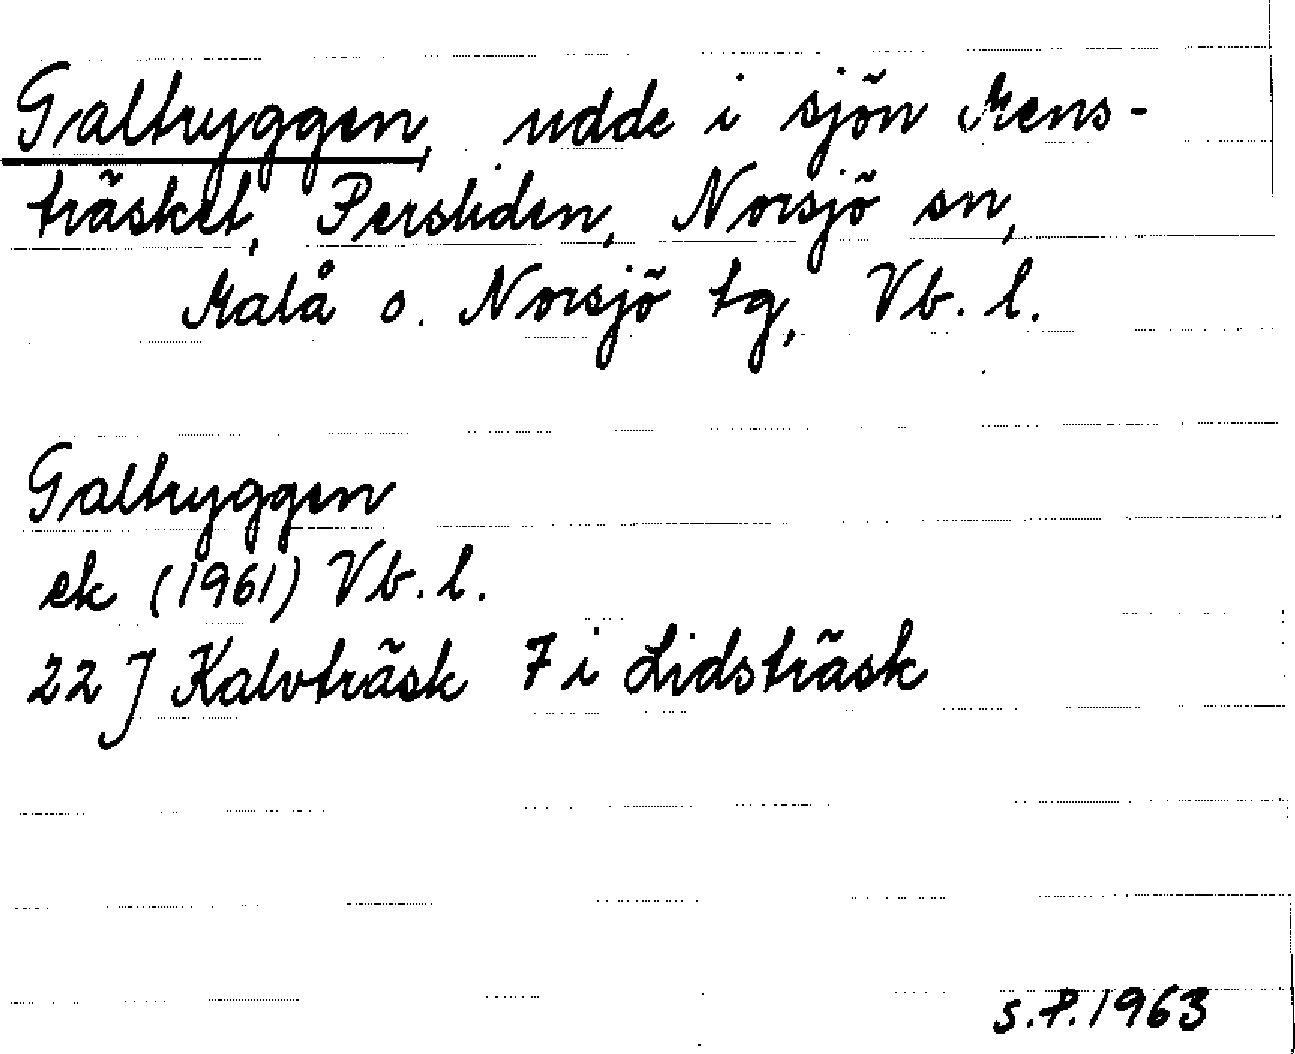 Galtryggen, udde i sjön Mens-
träsket, Persliden, Norsjö sn,
Malå o. Norsjö tg, Vb. l.
Galtryggen
ek (1961) Vb. l.
22 J Kalvträsk 7 i Lidsträsk
S.P. 1963